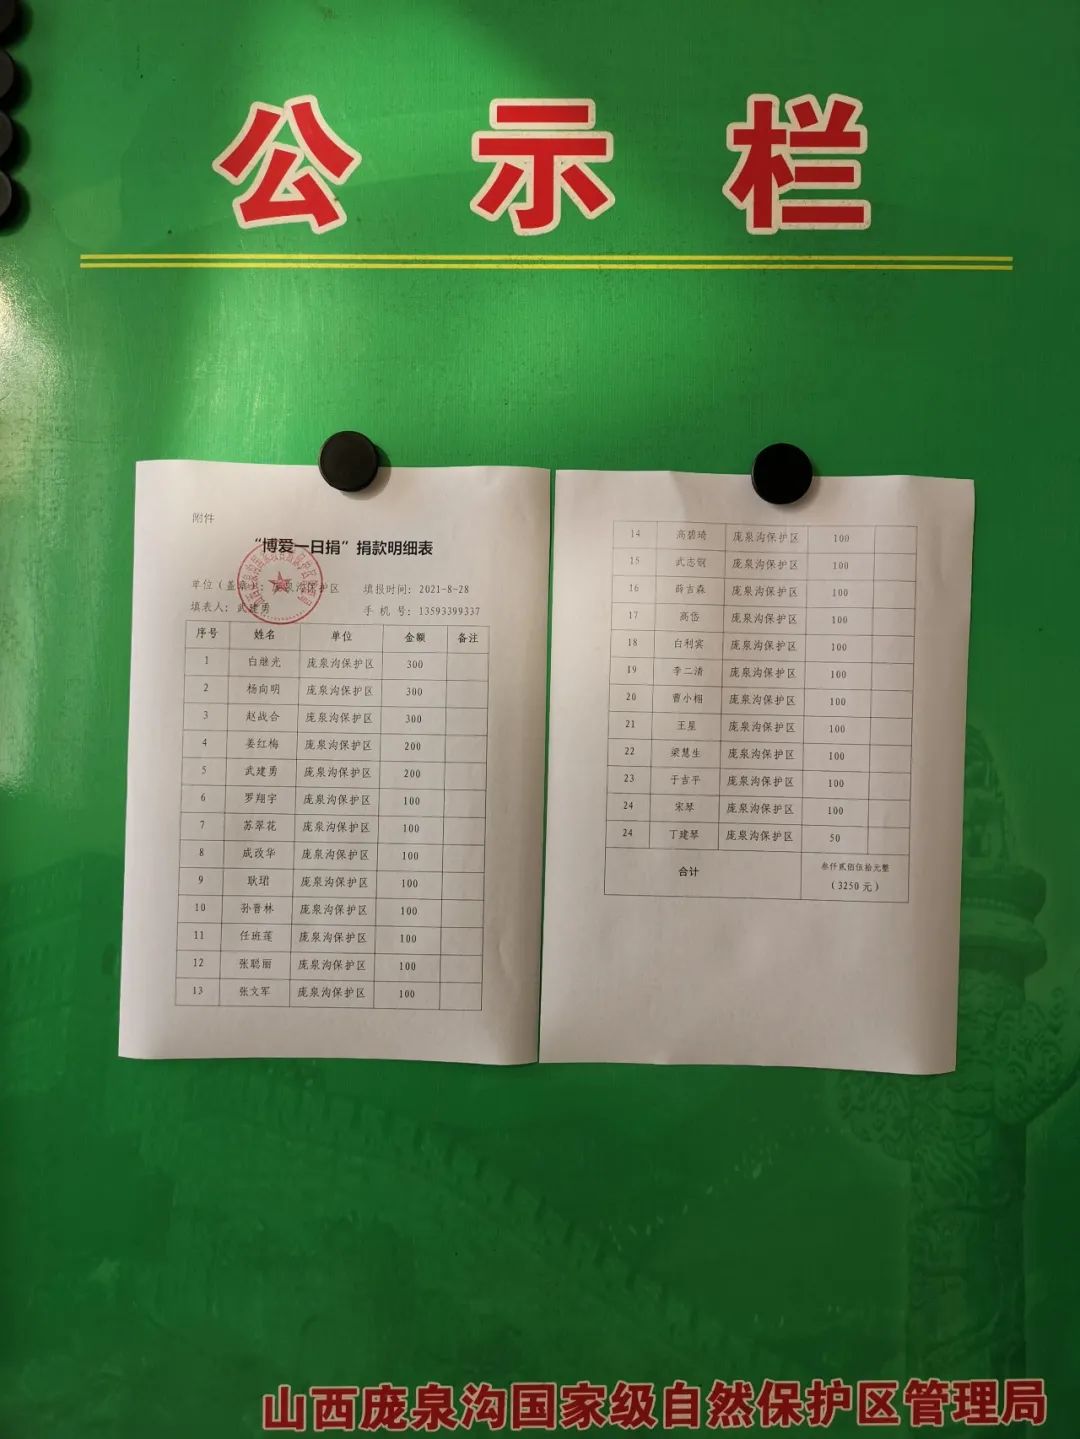 公示栏
附件
“博爱一日捐”捐款明细表
单位（盖章）：庞泉沟保护区 填报时间：2021-8-28
填表人：武建勇 手 机 号：13593399337
序号 姓名 单位 金额 备注
1 白继光 庞泉沟保护区 300
2 杨向明 庞泉沟保护区 300
3 赵战合 庞泉沟保护区 300
4 姜红梅 庞泉沟保护区 200
5 武建勇 庞泉沟保护区 200
6 罗翔宇 庞泉沟保护区 100
7 苏翠花 庞泉沟保护区 100
8 成改华 庞泉沟保护区 100
9 耿珺 庞泉沟保护区 100
10 孙晋林 庞泉沟保护区 100
11 任班莲 庞泉沟保护区 100
12 张聪丽 庞泉沟保护区 100
13 张文军 庞泉沟保护区 100
14 高碧琦 庞泉沟保护区 100
15 武志钢 庞泉沟保护区 100
16 薛吉森 庞泉沟保护区 100
17 高岱 庞泉沟保护区 100
18 白利宾 庞泉沟保护区 100
19 李二清 庞泉沟保护区 100
20 曹小榻 庞泉沟保护区 100
21 王星 庞泉沟保护区 100
22 梁慧生 庞泉沟保护区 100
23 于吉平 庞泉沟保护区 100
24 宋琴 庞泉沟保护区 100
24 丁建琴 庞泉沟保护区 50
合计 叁仟贰佰伍拾元整
（3250 元）
山西庞泉沟国家级自然保护区管理局